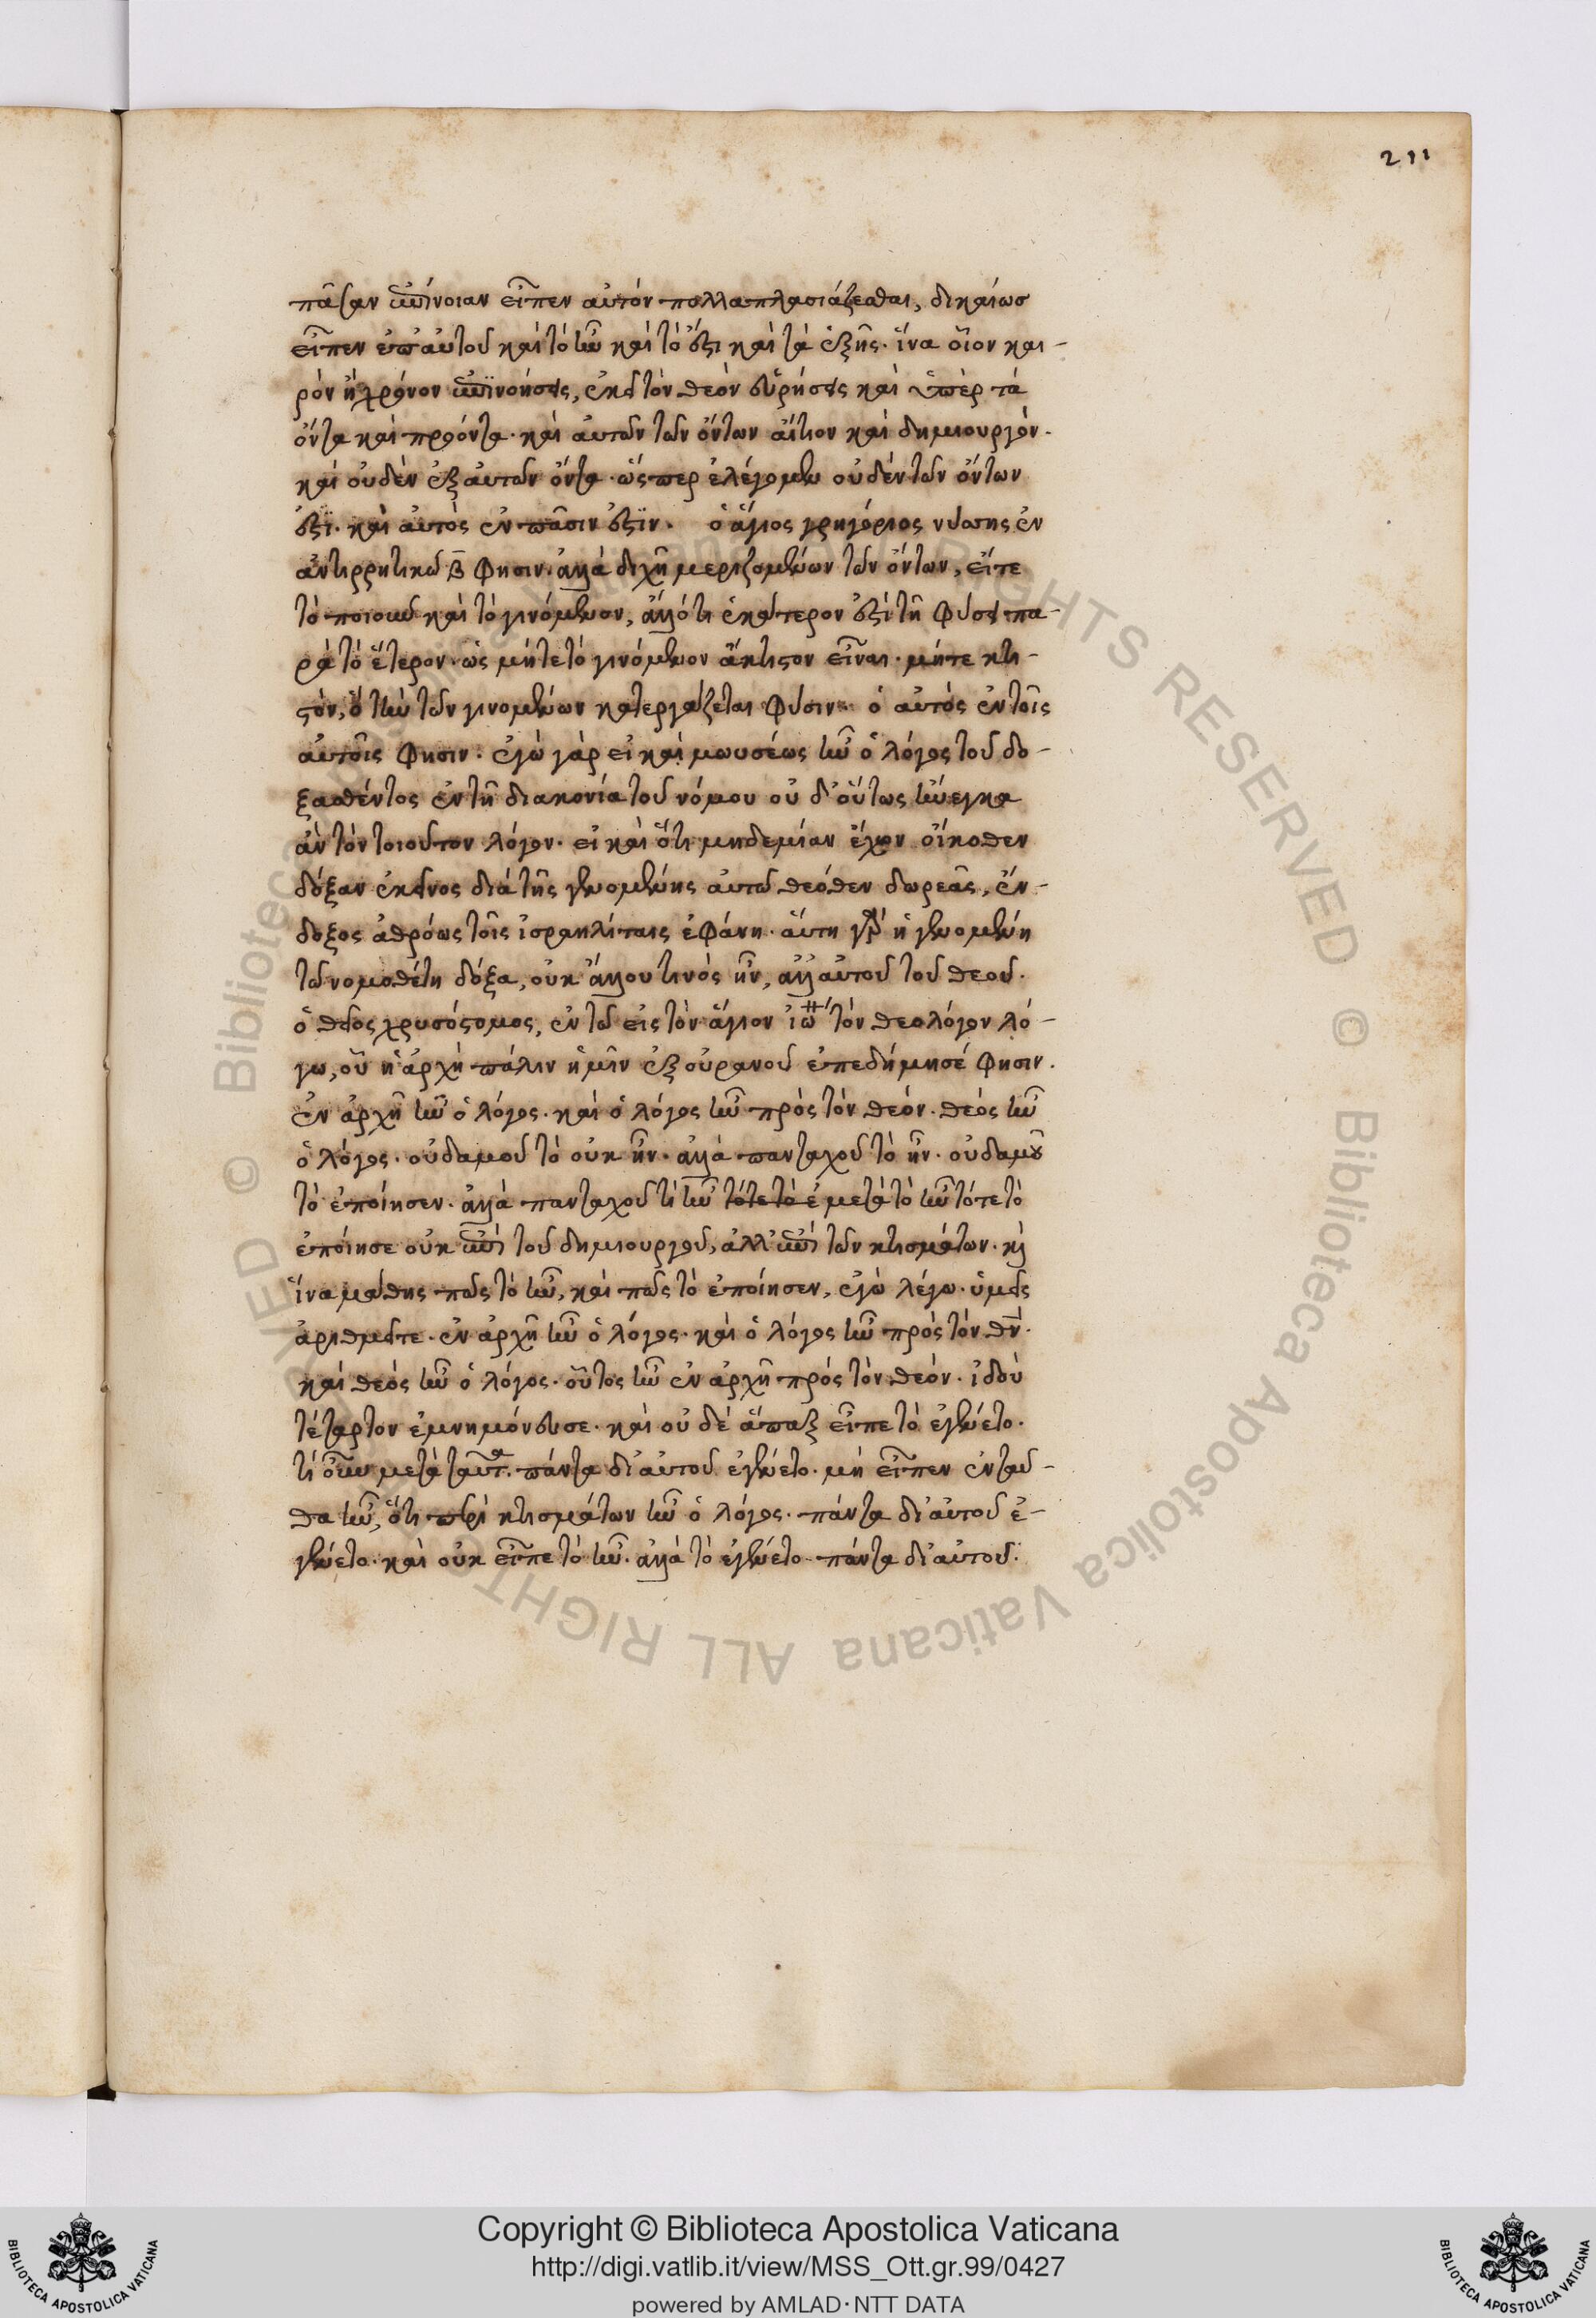 211
πᾶσαν ἐπίνοιαν εἶπεν αὐτὸν πολλαπλασιάζεσθαι, δικαίως
εἶπεν ἐπ' αὐτοῦ καὶ τὸ ἦν καὶ τὸ ἔστι καὶ τὰ ἑξῆς· ἵνα οἷον και-
ρὸν ἢ χρόνον ἐπινοήσεις, ἐκεῖ τὸν θεὸν εὑρήσεις καὶ ὑπὲρ τὰ
ὄντα καὶ προόντα· καὶ αὐτῶν τῶν ὄντων αἴτιον καὶ δημιουργόν·
καὶ οὐδὲν ἐξ αὐτῶν ὄντα· ὥσπερ ἐλέγομεν οὐδὲν τῶν ὄντων
ἐστί· καὶ αὐτὸς ἐν πᾶσιν ἐστϊν· ὁ ἅγιος γρηγόριος νύσης ἐν
ἀντιρρητικῶ β̅ φησιν· ἀλλὰ διχῆ μεριζομένων τῶν ὄντων, εἴτε
τὸ ποιοῦν καὶ τὸ γινόμενον, ἄλλό τι ἑκάτερον ἐστὶ τῆ φύσει πα-
ρὰ τὸ ἕτερον· ὡς μήτε τὸ γινόμενον ἄκτιστον εἶναι· μήτε κτι-
στὸν, ὃ τὴν τῶν γινομένων κατεργάζεται φύσιν· ὁ αὐτὸς ἐν τοῖς
αὐτοῖς φησιν· ἐγὼ γὰρ εἰ καὶ μωυσέως ἦν ὁ λόγος τοῦ δο-
ξασθέντος ἐν τῆ διακονία τοῦ νόμου οὐ δ' οὕτως ἤνεγκα
ἂν τὸν τοιοῦτον λόγον· εἰ καὶ ὅτι μηδεμίαν ἔχων οἴκοθεν
δόξαν ἐκεῖνος διὰ τῆς γενομένης αὐτῶ θεόθεν δωρεᾶς, ἔν-
δοξος ἀθρόως τοῖς ἰσραηλίταις ἐφάνη· αὕτη γὰρ ἡ γενομένη
τῶ νομοθέτη δόξα, οὐκ ἄλλου τινὸς ἦν, ἀλλ' αὐτοῦ τοῦ θεοῦ·
ὁ θεῖος χρυσόστομος, ἐν τῶ εἰς τὸν ἅγιον ἰω τὸν θεολόγον λό-
γω, οὗ ἡ ἀρχὴ πάλιν ἡμῖν ἐξ οὐρανοῦ ἐπεδήμησέ φησιν·
ἐν ἀρχῆ ἦν ὁ λόγος· καὶ ὁ λόγος ἦν πρὸς τὸν θεόν· θεὸς ἦν
ὁ λόγος· οὐδαμοῦ τὸ οὐκ ἦν· ἀλλὰ πανταχοῦ τὸ ἦν· οὐδαμοῦ
τὸ ἐποίησεν· ἀλλὰ πανταχοῦ τὶ ἦν τότε τὸ ἐ μετὰ τὸ ἦν τότε τὸ
ἐποίησε οὐκ ἐπὶ τοῦ δημιουργοῦ, ἀλλ' ἐπὶ τῶν κτισμάτων· κὶ
ἵνα μάθης πῶς τὸ ἦν, καὶ πῶς τὸ ἐποίησεν, ἐγὼ λέγω· ὑμεῖς
ἀριθμεῖτε· ἐν ἀρχῆ ἦν ὁ λόγος· καὶ ὁ λόγος ἦν πρὸς τὸν θν·
καὶ θεὸς ἦν ὁ λόγος· οὗτος ἦν ἐν ἀρχῆ πρὸς τὸν θεόν· ἰδοὺ
τέταρτον ἐμνημόνευσε· καὶ οὐ δὲ ἅπαξ εἶπε τὸ ἐγένετο·
τί οὖν μετὰ ταῦτα· πάντα δι' αὐτοῦ ἐγένετο· μὴ εἶπεν ἐνταῦ-
θα ἦν, ὅτι περὶ κτισμάτων ἦν ὁ λόγος· πάντα δι' αὐτοῦ ἐ-
γένετο· καὶ οὐκ εἶπε τὸ ἦν· ἀλλὰ τὸ ἐγένετο πάντα δι' αὐτοῦ·
© Biblioteca Apostolica Vaticana ALL RIGHTS RESERVED
Copyright © Biblioteca Apostolica Vaticana
http://digi.vatlib.it/view/MSS_Ott.gr.99/0427
powered by AMLAD·NTT DATA
BIBLIOTECA APOSTOLICA VATICANA
BIBLIOTECA APOSTOLICA VATICANA